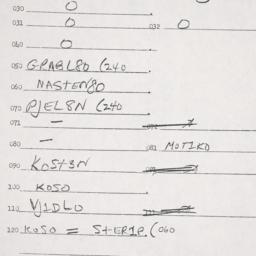 030 O
031 O 032 O
040 O
050 GRABL80 (240
060 NASTEN80
070 PJEL8N (240
071 —
080 — 081 MOTIKO
090 KOST3N
100 KOSO
110 VJIDLO
120 KOSO = STERIP. (060